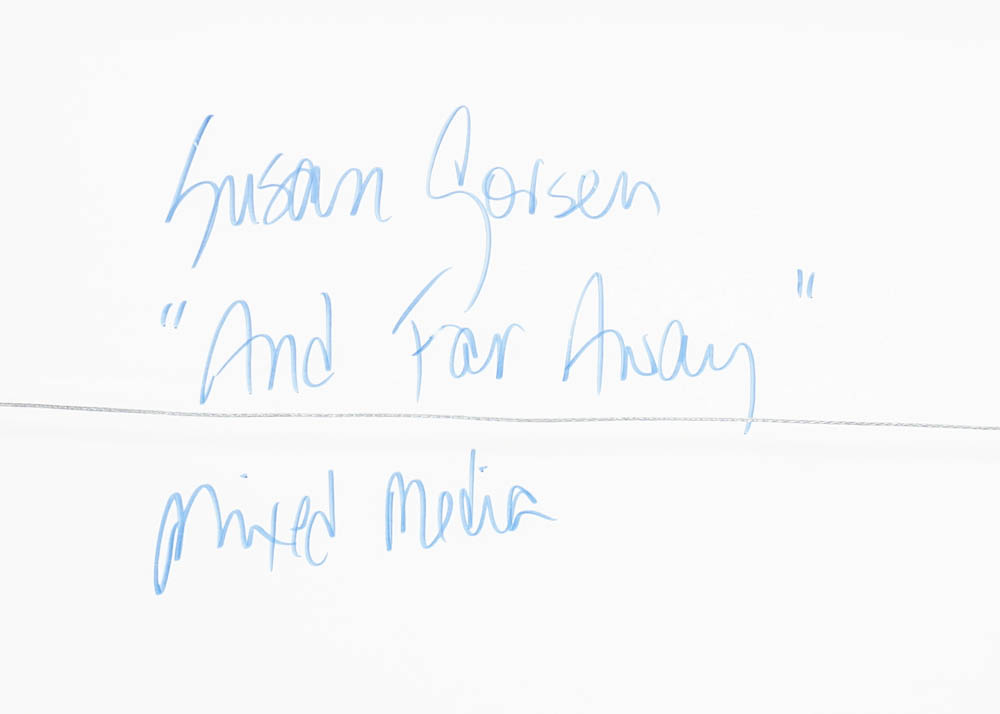 Susan Gorsen
"And Far Away"
Mixed Media